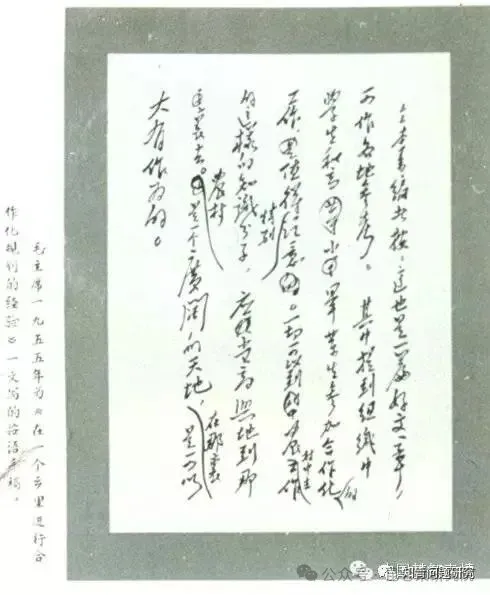 本书编者按：这也是一篇好文章，
可作各地参考。其中提到组织中
学生和高小毕业生参加合作化的
工作，值得特别注意。一切可以到农村中去工作
的這樣的知識分子，应当高兴地到那
里去。农村是一个广闊的天地，在那裏是可以
大有作为的。
毛主席一九五五年为《在一个乡里进行合
作化规划的经验》一文写的按语手稿。
公众号